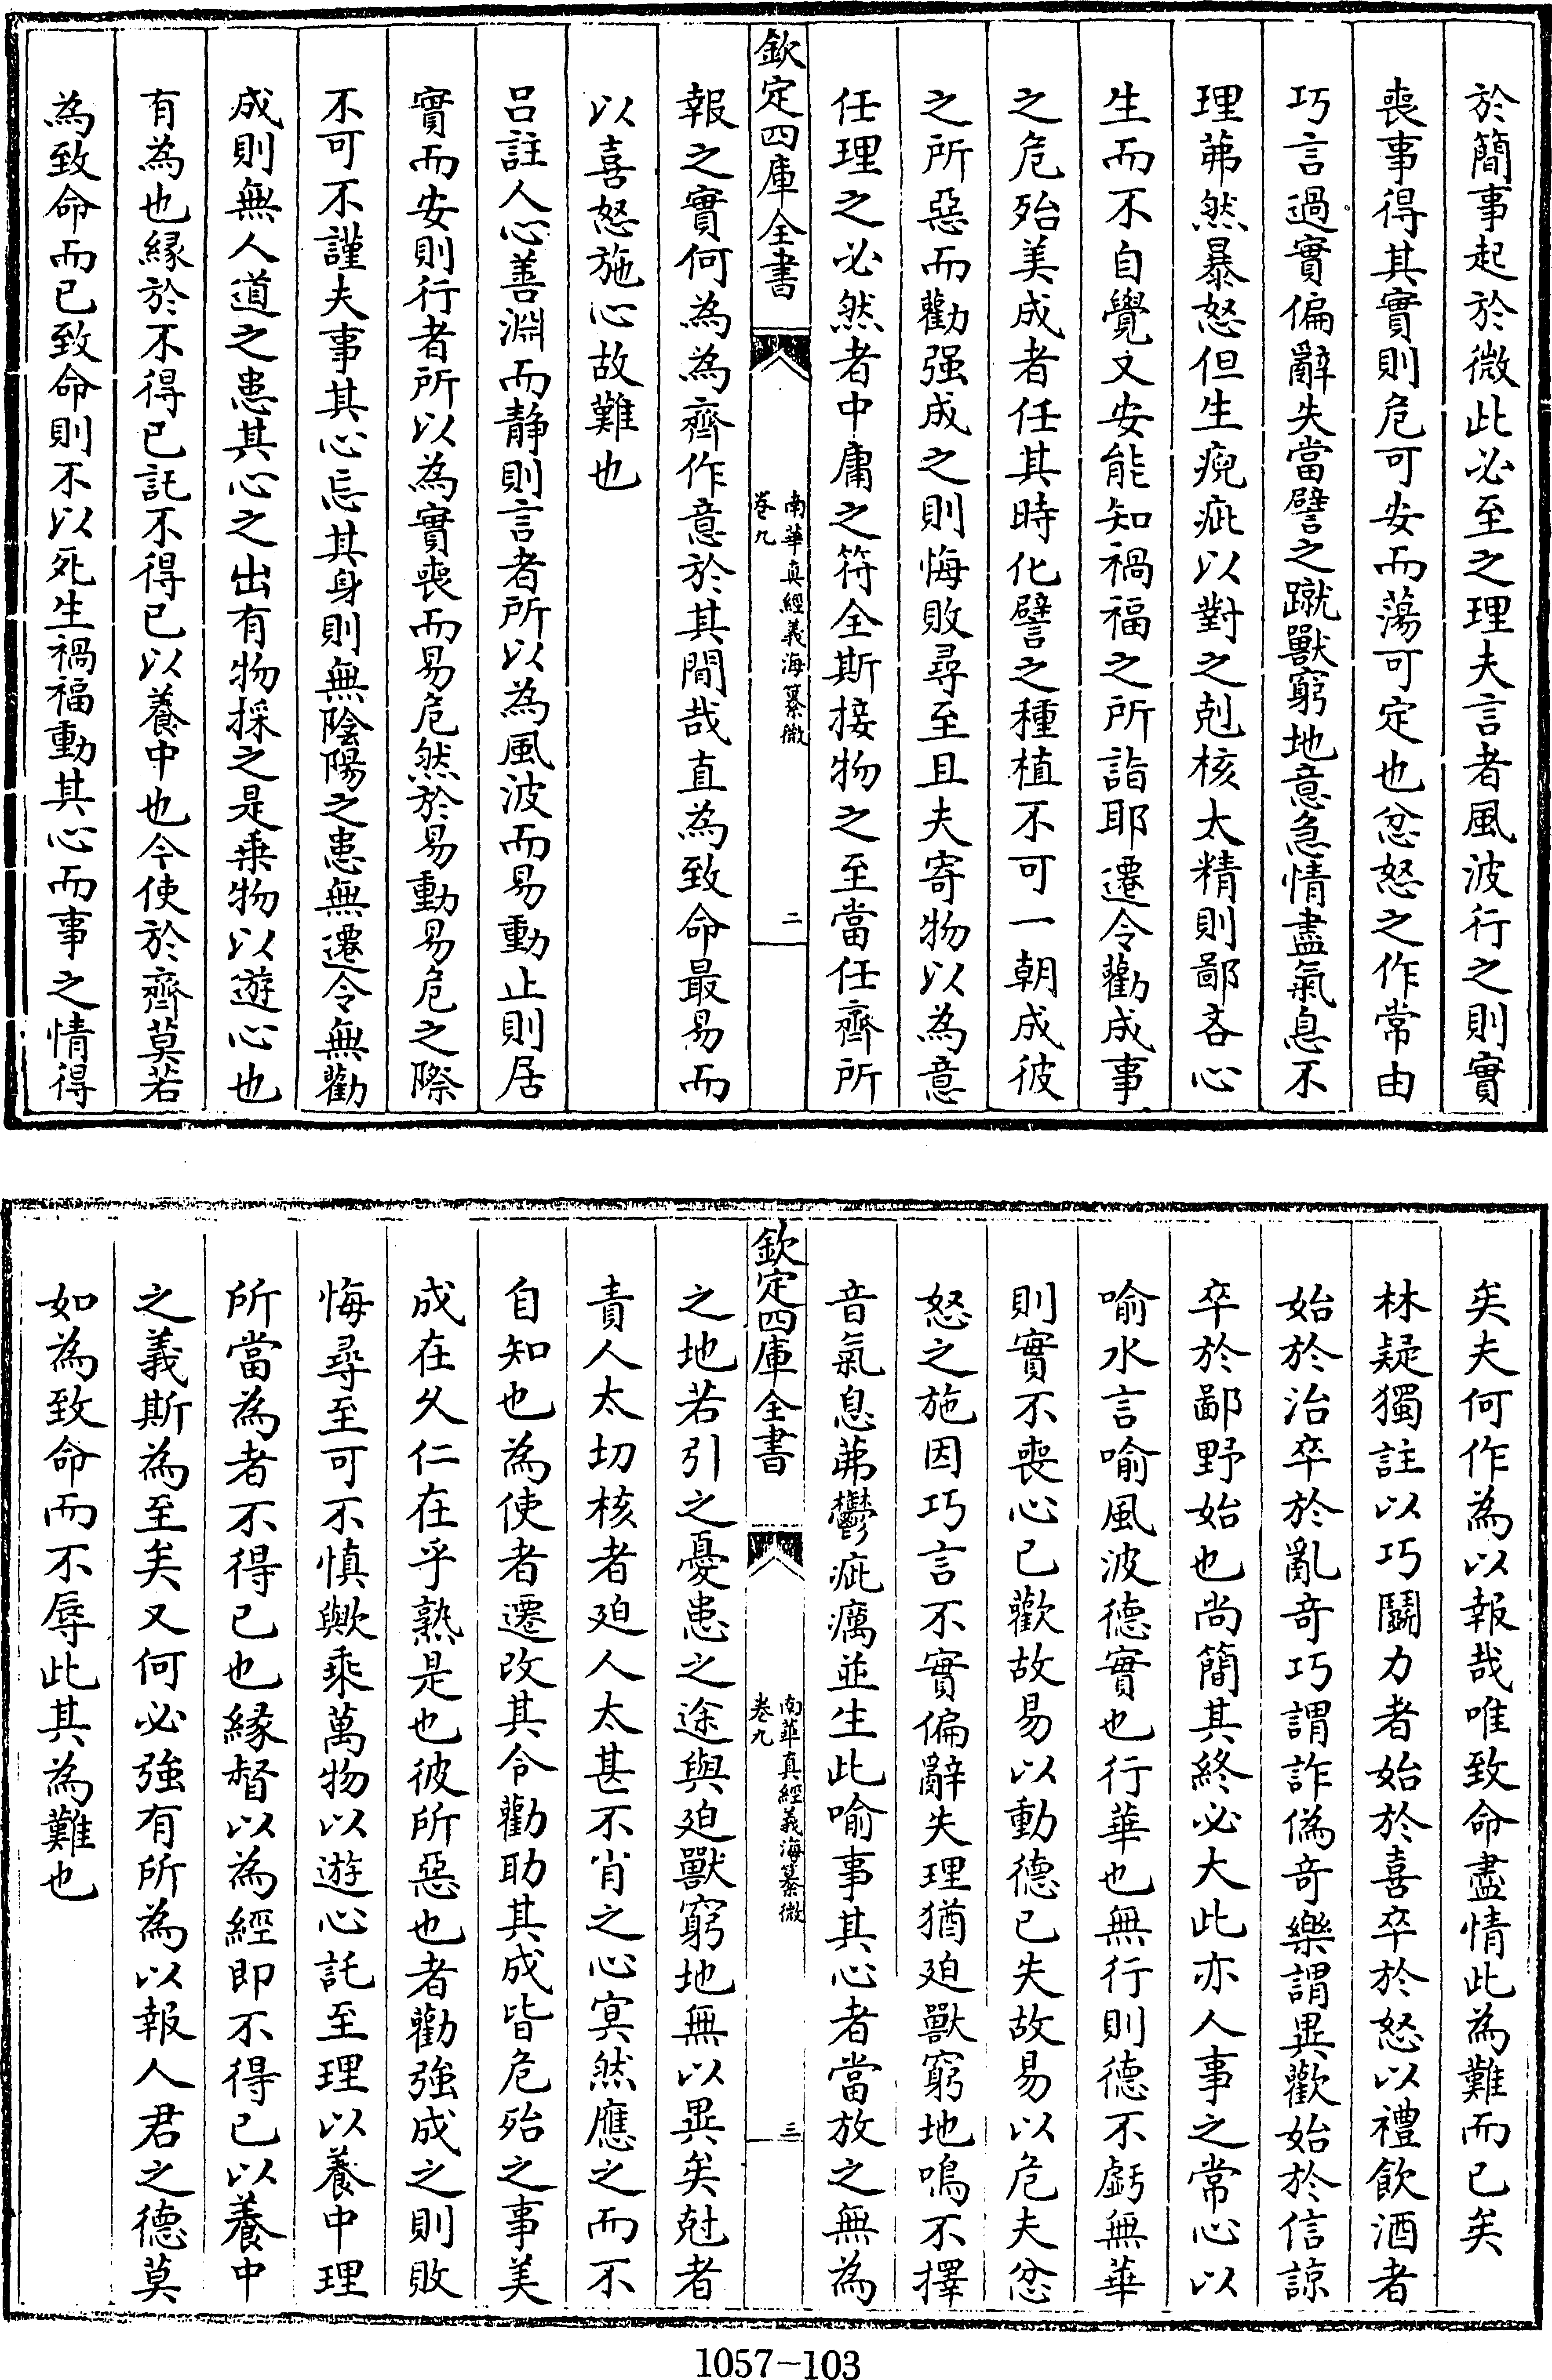 於簡事起於微此必至之理夫言者風波行之則實
喪事得其實則危可安而蕩可定也忿怒之作常由
巧言過實偏辭失當譬之蹴獸窮地意急情盡氣息不
理茀然暴怒但生㾿疵以對之剋核太精則鄙吝心
生而不自覺又安能知禍福之所詣耶遷令勸成事
之危殆美成者任其時化譬之種植不可一朝成彼
之所惡而勸强成之則悔敗尋至且夫寄物以為意
任理之必然者中庸之符全斯接物之至當任齊所
欽定四庫全書
南華真經義海纂微
卷九
二
報之實何為為齊作意於其間哉直為致命最易而
以喜怒施心故難也
呂註人心善淵而静則言者所以為風波而易動止則居
實而安則行者所以為實喪而易危然於易動易危之際
不可不謹夫事其心忘其身則無陰陽之患無遷令無勸
成則無人道之患其心之出有物採之是乗物以遊心也
有為也緣於不得已託不得已以養中也今使於齊莫若
為致命而已致命則不以死生禍福動其心而事之情得
矣夫何作為以報哉唯致命盡情此為難而已矣
林疑獨註以巧鬭力者始於喜卒於怒以禮飲酒者
始於治卒於亂竒巧謂詐偽竒樂謂異歡始於信諒
卒於鄙野始也尚簡其終必大此亦人事之常心以
喻水言喻風波德實也行華也無行則德不虧無華
則實不喪心已歡故易以動德已失故易以危夫忿
怒之施因巧言不實偏辭失理猶廹獸窮地鳴不擇
音氣息茀鬱疵癘並生此喻事其心者當放之無為
欽定四庫全書
南華真經義海纂微
卷九
三
之地若引之憂患之途與廹獸窮地無以異矣尅者
責人太切核者廹人太甚不肖之心㝠然應之而不
自知也為使者遷改其令勸助其成皆危殆之事美
成在久仁在乎熟是也彼所惡也者勸強成之則敗
悔尋至可不慎歟乘萬物以遊心託至理以養中理
所當為者不得已也緣督以為經即不得已以養中
之義斯為至矣又何必強有所為以報人君之德莫
如為致命而不辱此其為難也
1057-103